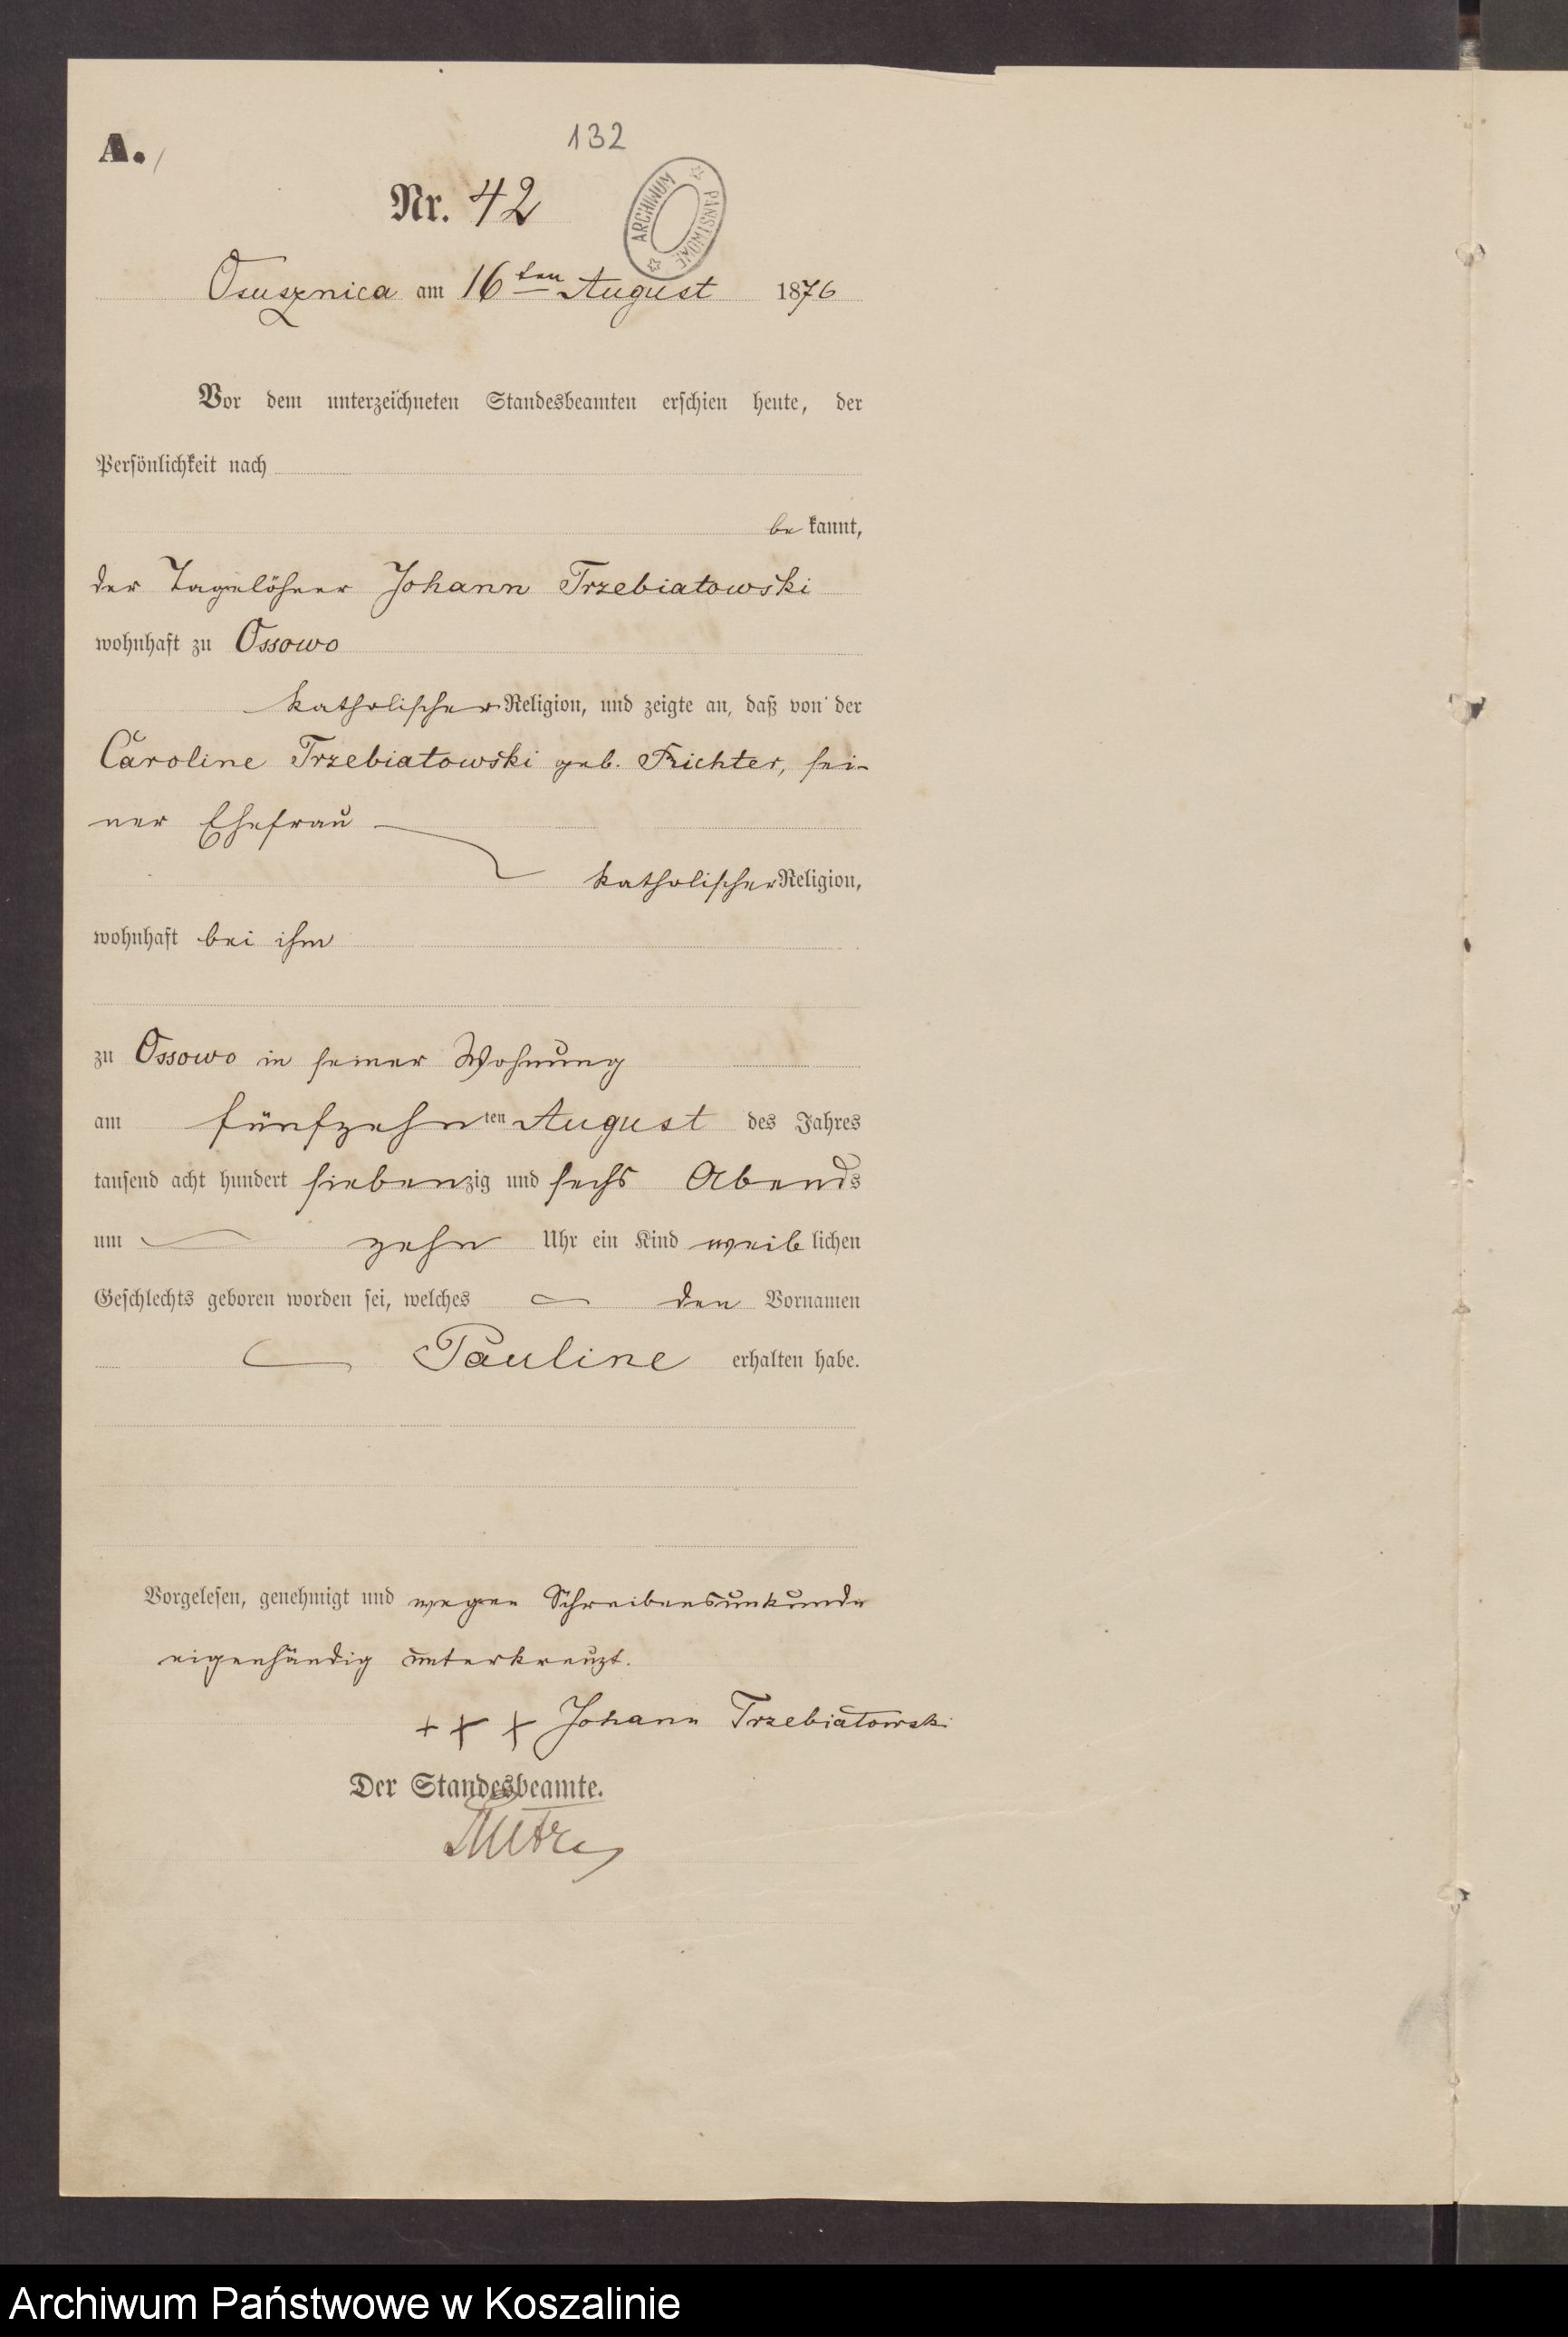 A.
132
Nr. 42
ARCHIWUM PAŃSTWOWE
Osusznica am 16ten August 1876
Vor dem unterzeichneten Standesbeamten erschien heute, der
Persönlichkeit nach
be kannt,
der Tagelöhner Johann Trzebiatowski
wohnhaft zu Ossowo
katholischer Religion, und zeigte an, daß von der
Caroline Trzebiatowski geb. Richter, sei-
ner Ehefrau
katholischer Religion,
wohnhaft bei ihm
zu Ossowo in seiner Wohnung
am fünfzehnten August des Jahres
tausend acht hundert siebenzig und sechs Abends
um zehn Uhr ein Kind weiblichen
Geschlechts geboren worden sei, welches den Vornamen
Pauline erhalten habe.
Vorgelesen, genehmigt und wegen Schreibensunkunde
eigenhändig unterkreuzt.
+++ Johann Trzebiatowski
Der Standesbeamte.
Archiwum Państwowe w Koszalinie